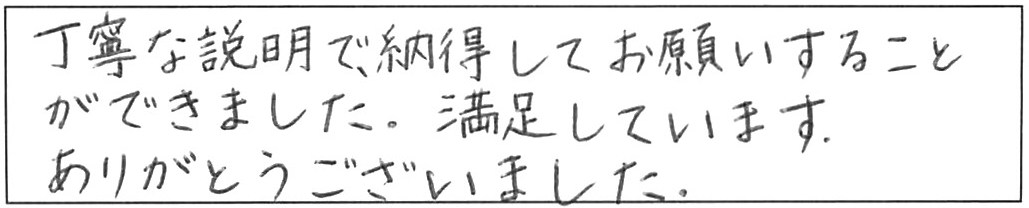 丁寧な説明で、納得してお願いすること
ができました。満足しています.
ありがとうございました.